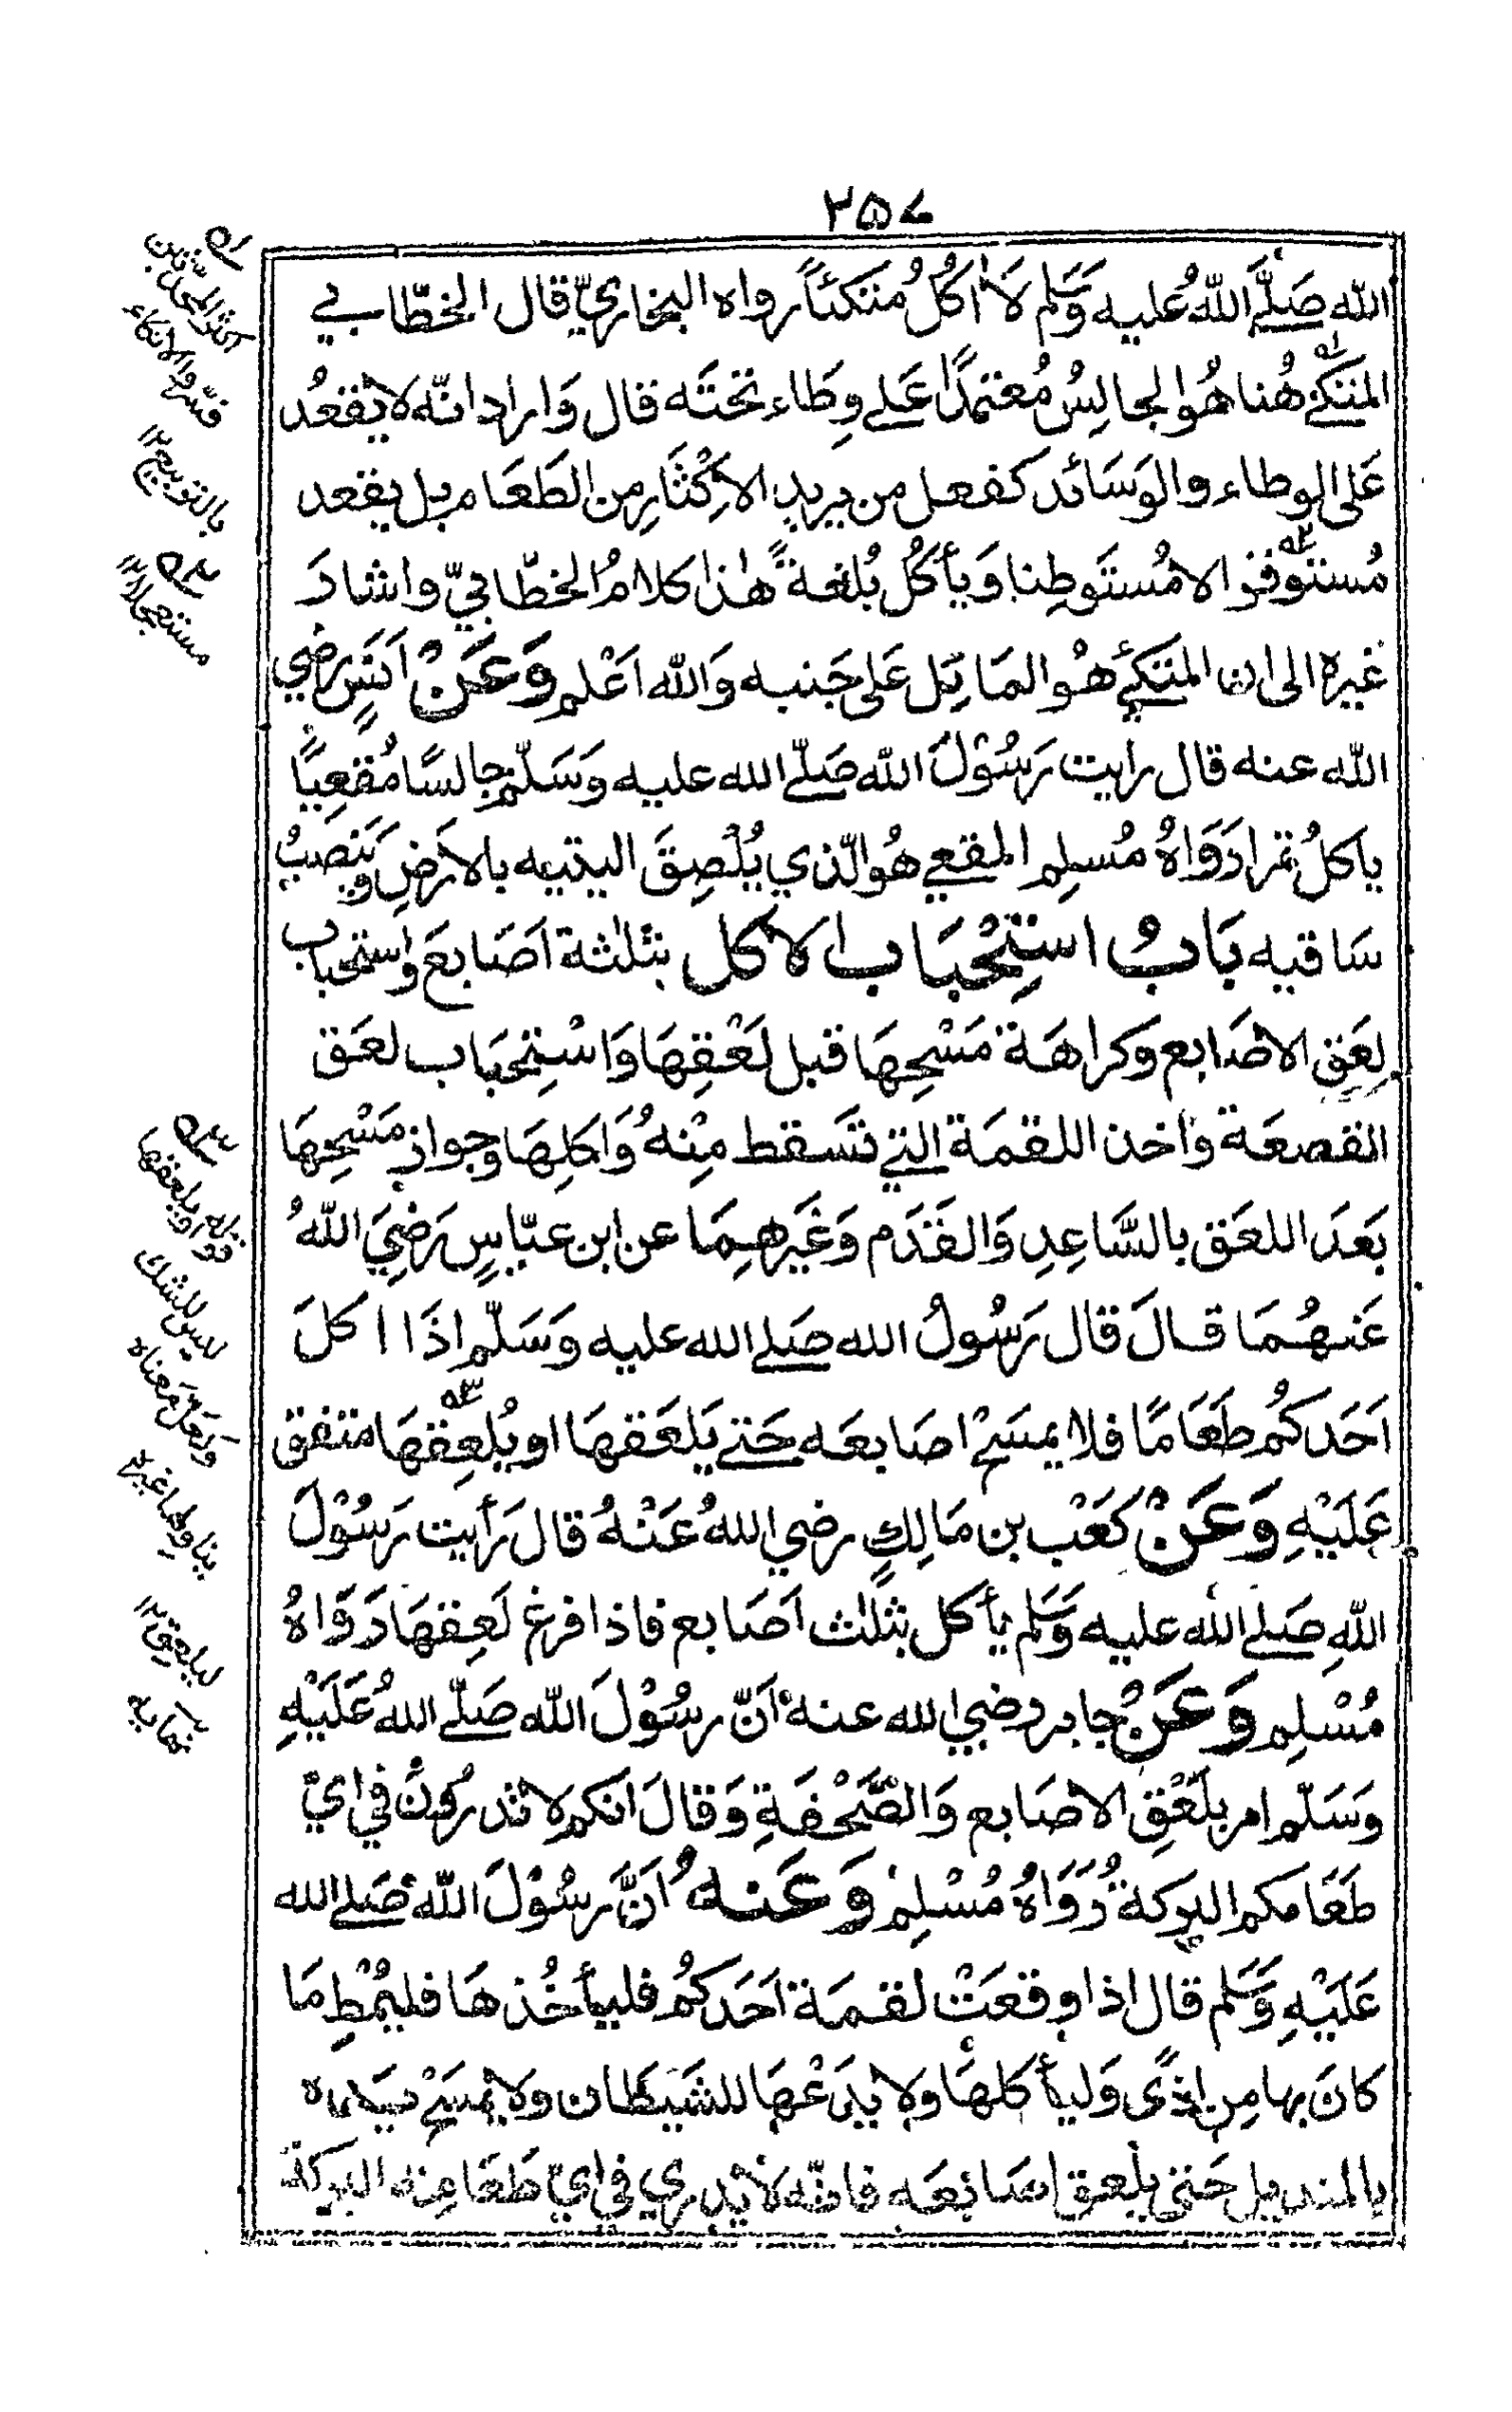 ٢٥٧
الله صَلَّے اللهُ عليه وَسَلَّم لَا اٰكُلُ متكئاً رواه البخاريّ قال الخطّابي
المتكئ هُنا هُو الجالِسُ مُعتمدًا عَلے وِطَاء تحتَه قال وَاراد انّه لا يقعُد
عَلى الوطاء والوَسَائد كفعل من يريد الاِكْثَارِ من الطَعَام بل يقعد
مُستَوفزا لا مُستَوطِنا وَيأكُلُ بُلغةً هٰذا كلامُ الخطّابيّ واشارَ
غيره الى ان المتكئ هُو المَائِل عَلى جَنبه وَالله اَعْلم وَعَنْ اَنَسٍ رضي
الله عنه قال رايت رَسُوْلَ الله صَلّے الله عليه وَسَلّم جالسًا مُقعِيًا
ياكلُ تمرا رَوَاهُ مُسلِم المقعے هُو الّذي يُلْصِقَ اليتيه بالاَرَضِ وَيَنصبُ
سَاقيه بَابُ استِحْبَاب الاكل بثلٰثة اَصَابعَ واستحباب
لِعَقِ الاصَابع وَكراهَة مَسْحِهَا قبل لَعْقِهَا وَاسْتِحبَاب لعَق
القصعَة واَخذ اللقمَة التے تَسقط مِنْهُ وَاكلِهَا وجواز مَسْحِهَا
بَعَدَ اللعَق بالسَّاعِدِ وَالقَدَم وَغَيرهِمَا عن ابن عبّاسٍ رَضِيَ اللهُ
عَنهُمَا قَالَ قال رَسُولُ الله صَلے الله عليه وَسَلّم اِذَا اكلَ
اَحَدكُم طَعَامًا فلا يمسَحْ اصَابعَه حَتے يَلعَقهَا او يُلعِقهَا متفق
عَلَيْهِ وَعَنْ كَعْب بن مَالِكٍ رضي اللهُ عَنْهُ قال رَأَيت رَسُوْلَ
اللهِ صَلے الله عليه وَسَلَّم يأكل بثلٰث اَصَابع فاذا فرغ لَعِقهَا رَوَاهُ
مُسْلِم وَعَنْ جابر رضي الله عنه اَنّ رسُوْلَ الله صَلّے اللهُ عَلَيْهِ
وَسَلّم امر بلَعْقِ الاصَابع وَالصَّحْفَةِ وَقالَ انكم لا تدرُونَ في ايّ
طَعَامكم البركة رَوَاهُ مُسْلِم وَعَنهُ اَنَّ رسُوْلَ الله صَلے الله
عَلَيْهِ وَسَلَّم قال اذا وقعَتْ لقمَة اَحَدكُم فليأخُذهَا فليُمْطِ مَا
كانَ بها مِن اذًى وَليأكلهَا ولا يدَعْهَا للشَيطَان ولا يمسَحْ يَدَه
بالمنديل حَتى يلعق اصَابعَه فانّه لا يدري في ايّ طَعَامِه البركة
١ه
اكثر المحدّثين
فسّروا الاتكاء
بالتربيع ١٢
٢ه
مستعجلا ١٢
٣ه
قوله او يلعقها
ليس للشك
وَلعَلّ معناه
يناولها غيره
ليلعق ١٢
نهايه